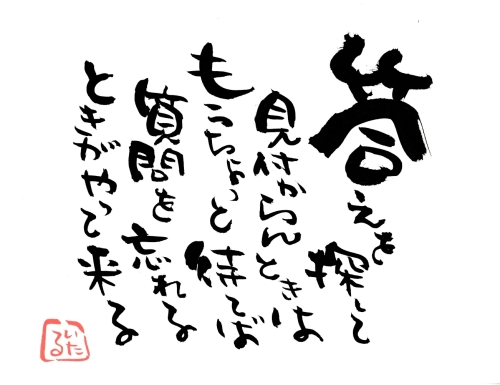 答えを探して
見付からんときは
もうちょっと待てば
質問を忘れる
ときがやって来る
いたる